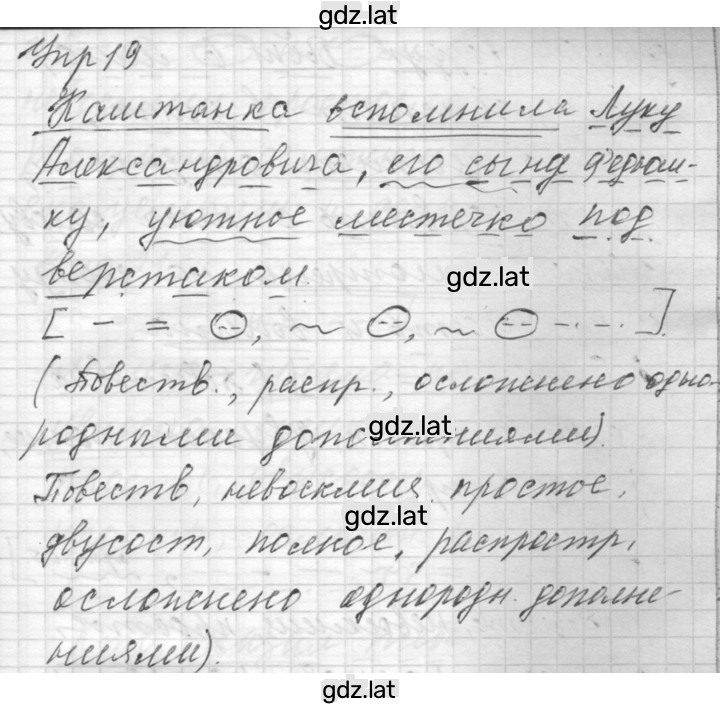 gdz.lat
Упр 19
Каштанка вспомнила Луку
Александровича, его сына Федюш-
ку, уютное местечко под
верстаком.
gdz.lat
[ - = , ~ , ~ -.-. ].
(Повеств., распр., осложнено одно-
родными дополнениями).
gdz.lat
Повеств, невосклиц. простое,
gdz.lat
двусост, полное, распростр,
осложнено однородн. дополне-
ниями).
gdz.lat